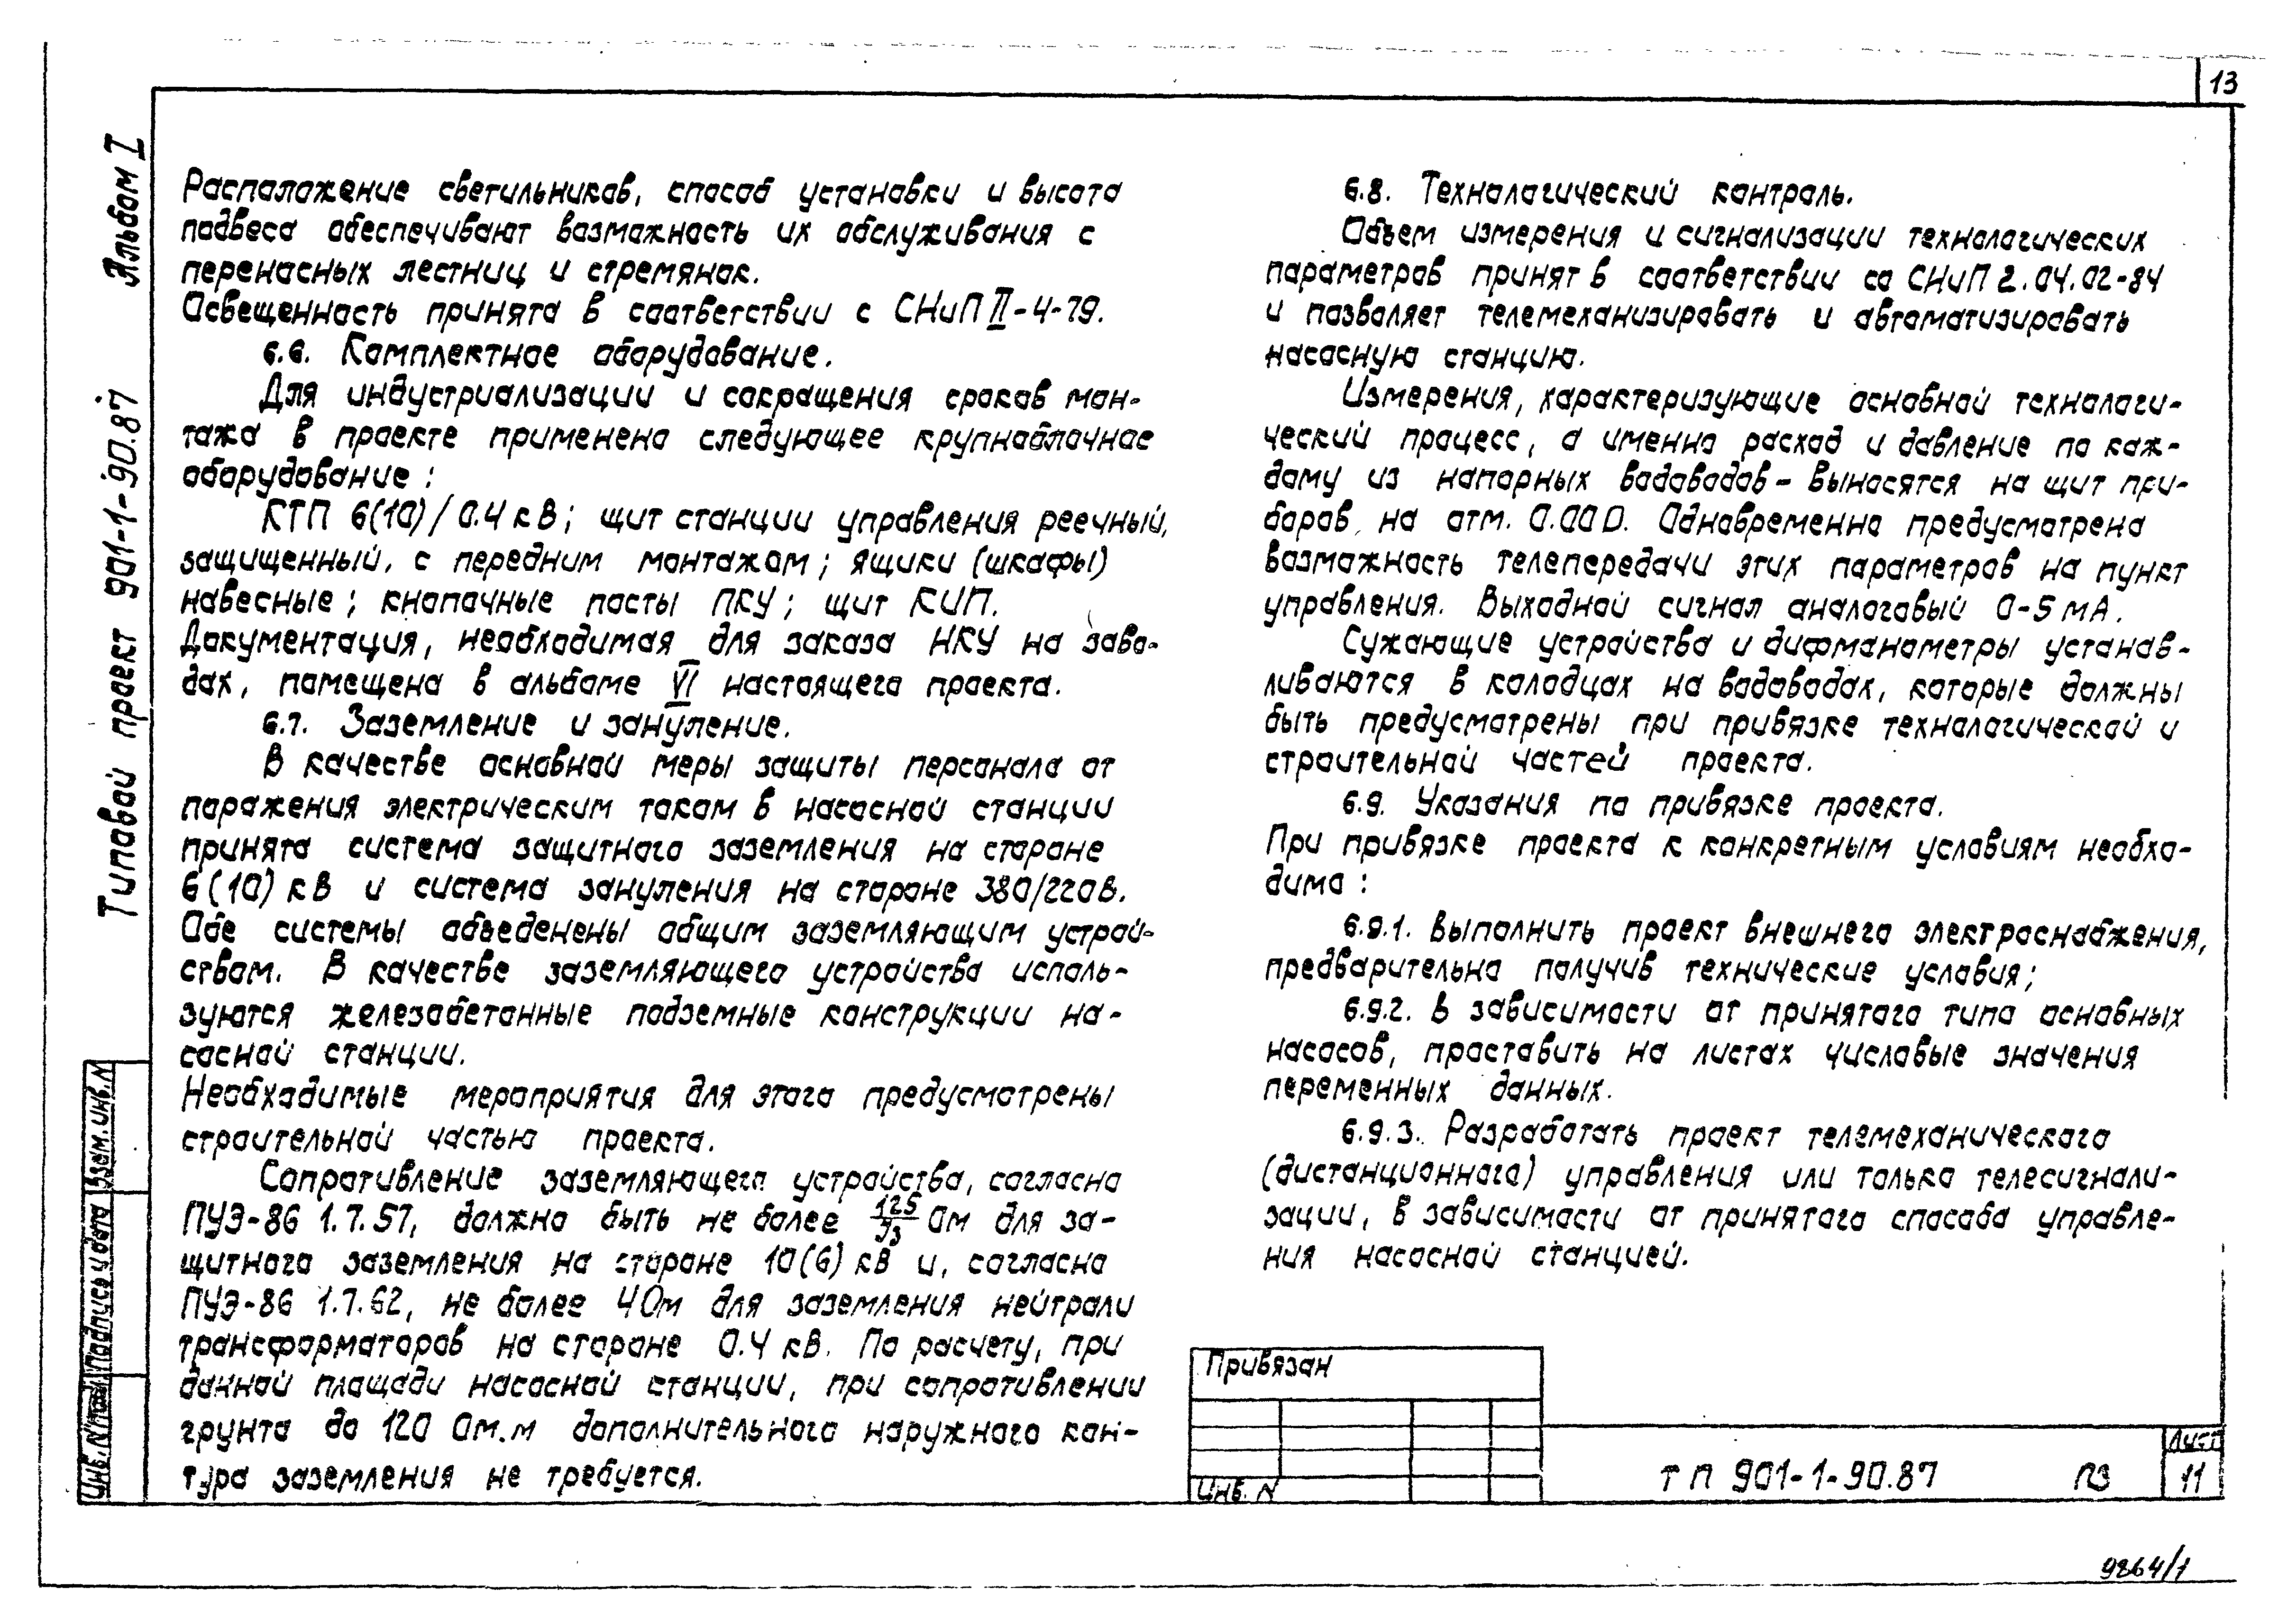 13
Альбом I
Типовой проект 901-1-90.87
Расположение светильников, способ установки и высота
подвеса обеспечивают возможность их обслуживания с
переносных лестниц и стремянок.
Освещенность принята в соответствии с СНиП II-4-79.
6.6. Комплектное оборудование.
Для индустриализации и сокращения сроков мон-
тажа в проекте применено следующее крупноблочное
оборудование:
КТП 6(10)/0.4 кВ; щит станции управления реечный,
защищенный, с передним монтажом; ящики (шкафы)
навесные; кнопочные посты ПКУ; щит КИП.
Документация, необходимая для заказа НКУ на заво-
дах, помещена в альбоме VI настоящего проекта.
6.7. Заземление и зануление.
В качестве основной меры защиты персонала от
поражения электрическим током в насосной станции
принята система защитного заземления на стороне
6(10) кВ и система зануления на стороне 380/220В.
Обе системы объеденены общим заземляющим устрой-
ством. В качестве заземляющего устройства исполь-
зуются железобетонные подземные конструкции на-
сосной станции.
Необходимые мероприятия для этого предусмотрены
строительной частью проекта.
Сопротивление заземляющего устройства, согласно
ПУЭ-86 1.7.57, должно быть не более 125/Jз Ом для за-
щитного заземления на стороне 10(6) кВ и, согласно
ПУЭ-86 1.7.62, не более 4 Ом для заземления нейтрали
трансформаторов на стороне 0.4 кВ. По расчету, при
данной площади насосной станции, при сопротивлении
грунта до 120 Ом.м дополнительного наружного кон-
тура заземления не требуется.
6.8. Технологический контроль.
Объем измерения и сигнализации технологических
параметров принят в соответствии со СНиП 2.04.02-84
и позволяет телемеханизировать и автоматизировать
насосную станцию.
Измерения, характеризующие основной технологи-
ческий процесс, а именно расход и давление по каж-
дому из напорных водоводов - выносятся на щит при-
боров на отм. 0.000. Одновременно предусмотрена
возможность телепередачи этих параметров на пункт
управления. Выходной сигнал аналоговый 0-5 мА.
Сужающие устройства и дифманометры устанав-
ливаются в колодцах на водоводах, которые должны
быть предусмотрены при привязке технологической и
строительной частей проекта.
6.9. Указания по привязке проекта.
При привязке проекта к конкретным условиям необхо-
димо:
6.9.1. Выполнить проект внешнего электроснабжения,
предварительно получив технические условия;
6.9.2. В зависимости от принятого типа основных
насосов, проставить на листах числовые значения
переменных данных.
6.9.3. Разработать проект телемеханического
(дистанционного) управления или только телесигнали-
зации, в зависимости от принятого способа управле-
ния насосной станцией.
Взам. инв. N
Подпись и дата
Инв. N подл.
Привязан
Инв. N
ТП 901-1-90.87 ПЗ
Лист
11
9864/1